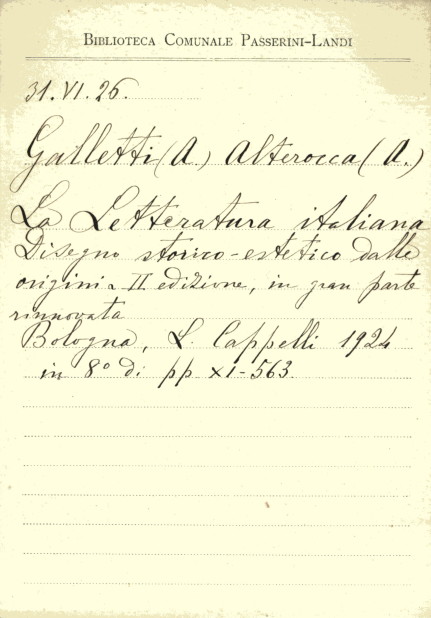 BIBLIOTECA COMUNALE PASSERINI-LANDI
31.VI.26.
Galletti (A.) Alterocca (A.)
La Letteratura italiana
Disegno storico-estetico dalle
origini. II edizione, in gran parte
rinnovata
Bologna, L. Cappelli 1924
in 8° di pp XI-563.